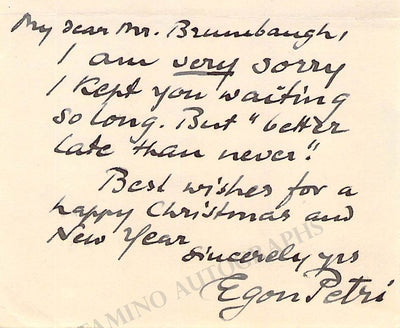 My dear Mr. Brumbaugh,
I am very sorry
I kept you waiting
so long. But "better
late than never".
Best wishes for a
happy Christmas and
New Year
Sincerely yrs
Egon Petri
TAMINO AUTOGRAPHS